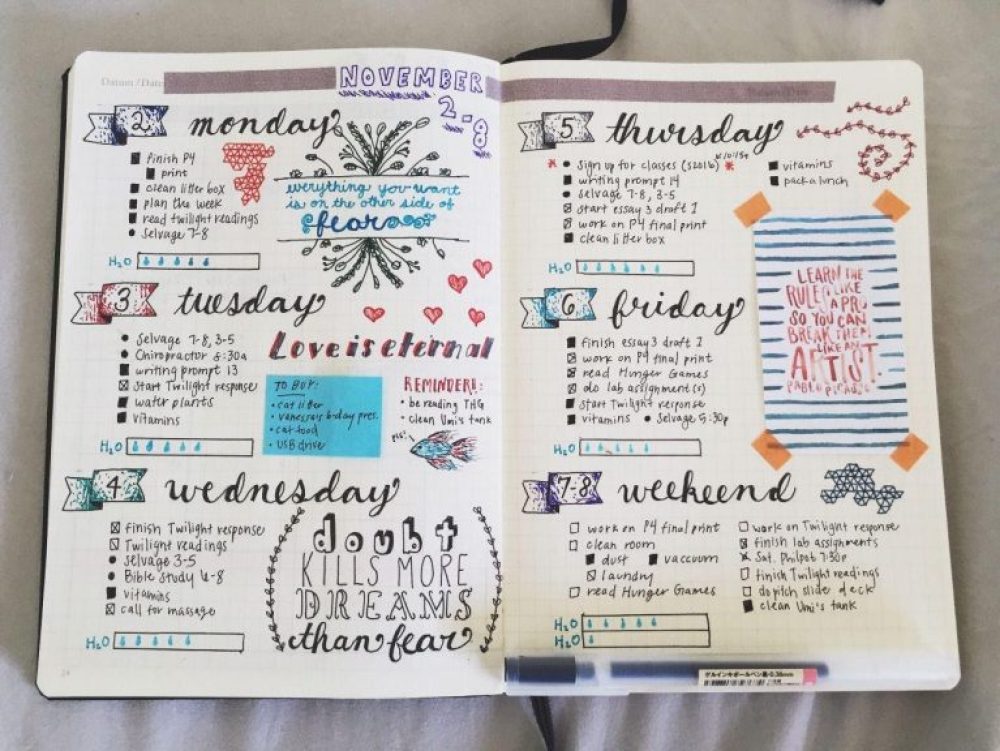 Datum / Date
NOVEMBER
2-8
2 monday
Finish P4
print
clean litter box
plan the week
read twilight readings
Selvage 7-8
H2O
everything you want
is on the other side of
fear
3 tuesday
Selvage 7-8, 3-5
Chiropractor 8:30a
writing prompt 13
Start Twilight response
water plants
vitamins
H2O
Love is eternal
TO BUY:
cat litter
vanessa's b-day pres.
cat food
USB drive
REMINDERS:
be reading THG
clean Umi's tank
4 wednesday
finish Twilight response
Twilight readings
Selvage 3-5
Bible Study 6-8
vitamins
call for massage
H2O
doubt
KILLS MORE
DREAMS
than fear
5 thursday
Sign up for classes (S2016)
writing prompt 14
Selvage 7-8, 3-5
start essay 3 draft 1
work on P4 final print
clean litter box
vitamins
pack a lunch
H2O
LEARN THE
RULES LIKE
A PRO
SO YOU CAN
BREAK THEM
LIKE AN
ARTIST.
PABLO PICASSO
6 friday
finish essay 3 draft 1
work on P4 final print
read Hunger Games
do lab assignment(s)
start Twilight response
vitamins
Selvage 5:30p
H2O
7-8 weekend
work on P4 final print
clean room
dust
vaccuum
laundry
read Hunger Games
work on Twilight response
finish lab assignments
Sat. Philpot 7:30p
finish Twilight readings
do pitch slide deck
clean Umi's tank
H2O
H2O
ゲルインキボールペン黒・0.38mm